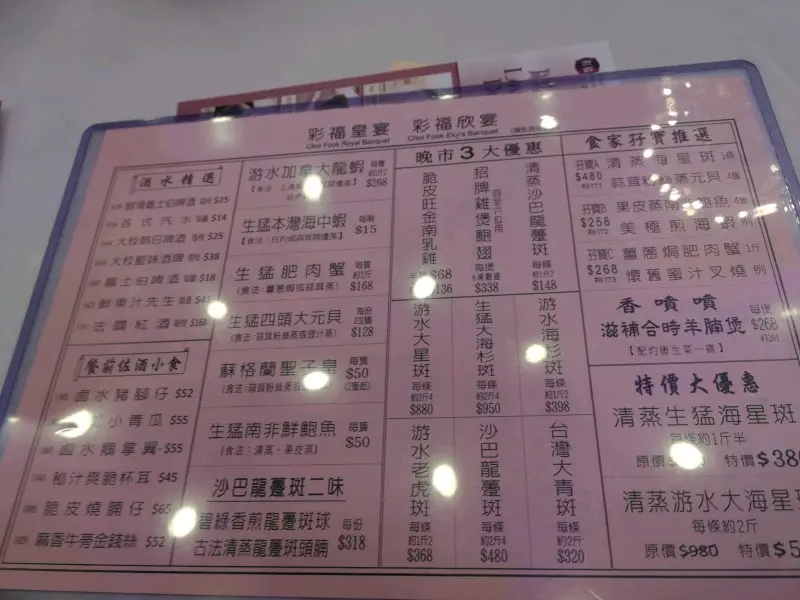 彩福皇宴 彩福欣宴
Choi Fook Royal Banquet Choi Fook Eky's Banquet
酒水精選
$25
各式汽水 $14
大枝朝日啤酒 $25
大枝藍妹啤酒 $38
嘉士伯啤酒 $18
鮮果汁先生 $45
法國紅酒 $168
餐前佐酒小食
鹵水豬腳仔 $52
小青瓜 $55
鹵水鵝掌翼 $55
秘汁爽脆杯耳 $45
脆皮燒腩仔 $65
麻香牛蒡金錢絲 $52
游水加拿大龍蝦 $268
生猛本灣海中蝦 $15
生猛肥肉蟹 每隻約1斤
(食法:薑蔥焗或蒜茸蒸) $168
生猛四頭大元貝 每份四隻
$128
蘇格蘭聖子皇 每隻 $50
生猛南非鮮鮑魚 每隻 $50
(食法:清蒸、果皮蒸)
沙巴龍躉斑二味
碧綠香煎龍躉斑球 每份
古法清蒸龍躉斑頭腩 $318
晚市3大優惠
脆皮旺金南乳雞
$68
$136
招牌雞煲鮑翅
每煲
$338
清蒸沙巴龍躉斑
每條約1斤2
$148
游水大星斑
每條約2斤4
$880
生猛大海杉斑
每條約2斤4
$950
游水海杉斑
每條約1斤2
$398
游水老虎斑
每條約1斤2
$368
沙巴龍躉斑
每條約2斤4
$480
台灣大青斑
每條約2斤
$320
食家孖寶推選
孖寶A 清蒸海星斑 1條
$480 蒜茸粉絲蒸元貝 4隻
孖寶B 果皮蒸南非鮑魚 4隻
$258 美極煎海蝦 例
孖寶C 薑蔥焗肥肉蟹 1斤
$268 懷舊蜜汁叉燒 例
香噴噴
滋補合時羊腩煲 每煲 $268
【配灼唐生菜一碟】
特價大優惠
清蒸生猛海星斑
每條約1斤半
原價 特價$38
清蒸游水大海星
每條約2斤
原價$980 特價$5